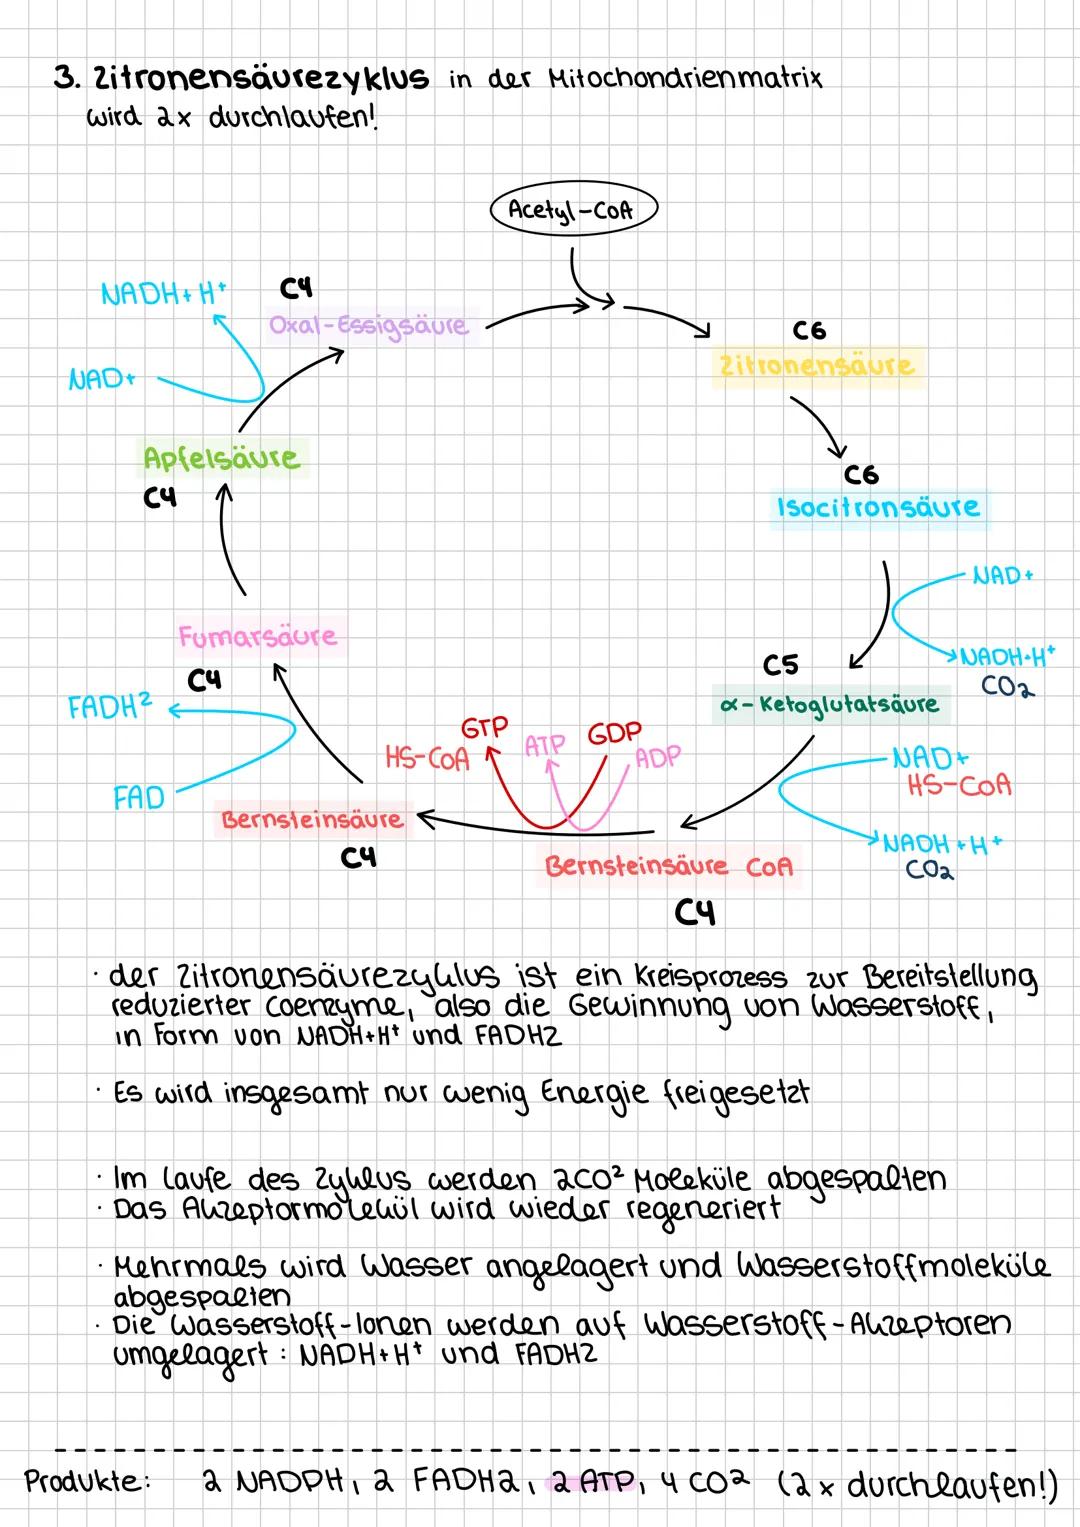 3. Zitronensäurezyklus in der Mitochondrienmatrix
wird 2x durchlaufen!
Acetyl-CoA
NADH+H⁺
C4
Oxal-Essigsäure
C6
Zitronensäure
NAD+
Apfelsäure
C4
C6
Isocitronsäure
NAD+
Fumarsäure
C4
C5
NADH+H⁺
CO₂
α-Ketoglutatsäure
FADH²
GTP
ATP
GDP
HS-CoA
ADP
NAD+
HS-CoA
FAD
Bernsteinsäure
C4
NADH+H⁺
CO₂
Bernsteinsäure CoA
C4
· der Zitronensäurezyklus ist ein Kreisprozess zur Bereitstellung
reduzierter Coenzyme, also die Gewinnung von Wasserstoff,
in Form von NADH+H⁺ und FADH2
· Es wird insgesamt nur wenig Energie freigesetzt
· Im Laufe des Zyklus werden 2CO² Moleküle abgespalten
· Das Akzeptormolekül wird wieder regeneriert
· Mehrmals wird Wasser angelagert und Wasserstoffmoleküle
abgespalten
· Die Wasserstoff-Ionen werden auf Wasserstoff-Akzeptoren
umgelagert: NADH+H⁺ und FADH2
Produkte: 2 NADPH, 2 FADH2, 2 ATP, 4 CO2 (2x durchlaufen!)